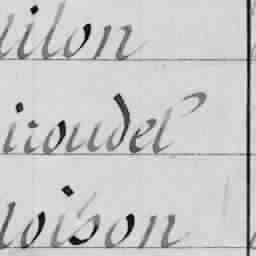 uilon
iroudel
loison